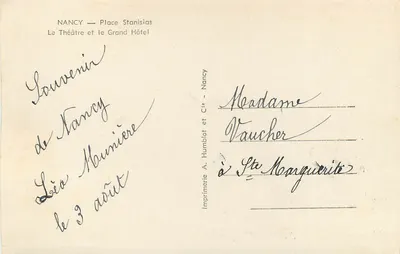 NANCY — Place Stanislas
Le Théâtre et le Grand Hôtel
Souvenir
de Nancy
Léa Munière
le 3 août
Imprimerie A. Humblot et Cie - Nancy
Madame
Vaucher
à Ste Marguerite